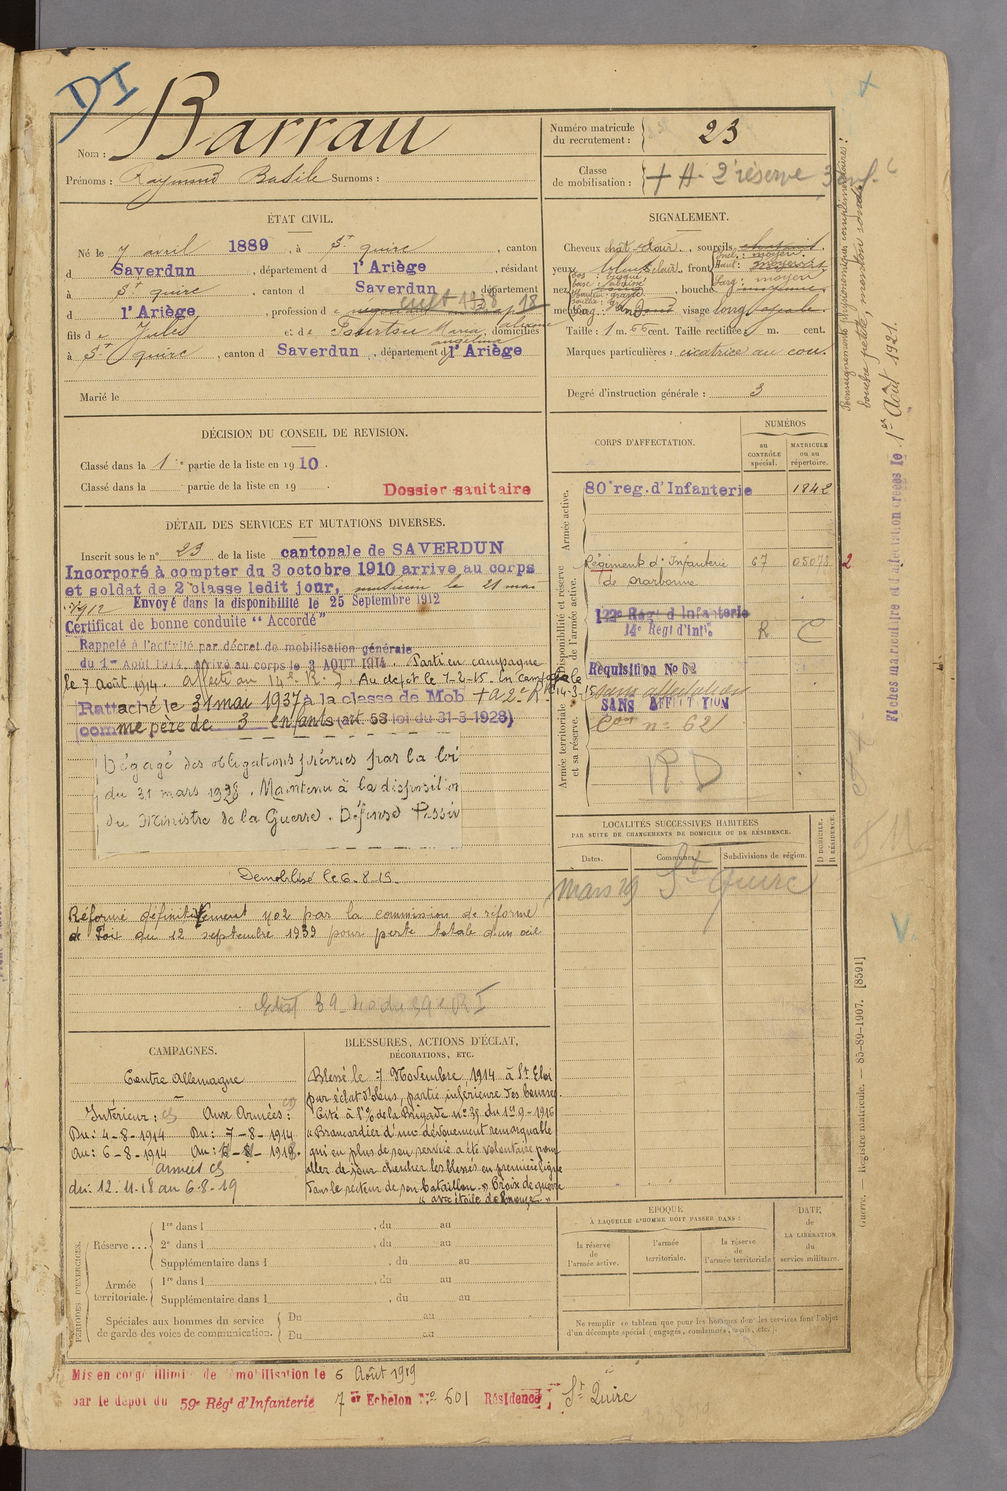 DI
Nom : Barrau
Prénoms : Raymond Basile Surnoms :
Numéro matricule du recrutement : 23
Classe de mobilisation : + A 2e réserve 3 enf.
ÉTAT CIVIL.
Né le 7 avril 1889, à St quirc, canton
d Saverdun, département d l'Ariège, résidant
à St quirc, canton d Saverdun, département
d l'Ariège, profession de cult
fils de Jules et de Maria angelina domiciliés
à St quirc, canton d Saverdun, département d l'Ariège
Marié le
SIGNALEMENT.
Cheveux chat. clair, sourcils
yeux bleus clair, front
Incl.: moyen.
Haut.: moyenne
Larg.: moyen
nez, bouche moyenne,
menton, visage long, ovale.
Taille : 1 m. 66 cent. Taille rectifiée m. cent.
Marques particulières : cicatrice au cou.
Degré d'instruction générale : 3
Renseignements physionomiques complémentaires :
bouche petite, menton
Fiches matriculaire et d'affectation créées le 1er Août 1921.
DÉCISION DU CONSEIL DE REVISION.
Classé dans la 1re partie de la liste en 1910.
Classé dans la partie de la liste en 19 .
Dossier sanitaire
DÉTAIL DES SERVICES ET MUTATIONS DIVERSES.
Inscrit sous le n° 23 de la liste cantonale de SAVERDUN
Incorporé à compter du 3 octobre 1910 arrive au corps
et soldat de 2e classe ledit jour, musicien le 21 mai
1912 Envoyé dans la disponibilité le 25 Septembre 1912
Certificat de bonne conduite "Accordé"
Rappelé à l'activité par décret de mobilisation générale
du 1er Août 1914. Arrivé au corps le 3 AOUT 1914. Parti en campagne
le 7 Août 1914. Affecté au 14e R. I. Au dépôt le 7-2-15. En campagne le 14-3-15
Rattaché le 31 mai 1937 à la classe de Mob + A 2e R
comme père de 3 enfants (art 58 loi du 31-3-1928)
Dégagé des obligations prévues par la loi
du 31 mars 1928. Maintenu à la disposition
du Ministre de la Guerre. Défense Passive
Démobilisé le 6.8.19.
Réformé définitivement n°2 par la commission de réforme
de Foix du 12 septembre 1939 pour perte totale d'un œil
CORPS D'AFFECTATION.
NUMÉROS
au CONTRÔLE spécial.
MATRICULE ou au répertoire.
Armée active.
80e reg. d'Infanterie 1842
Disponibilité et réserve de l'armée active.
Régiment d'Infanterie 67 05078 2
de Narbonne
122e Régt d'Infanterie
14e Régt d'Inf. R C
Armée territoriale et sa réserve.
Réquisition No 62
Sans affectation
SANS AFFECTATION
Con n° 62
RD
LOCALITÉS SUCCESSIVES HABITÉES
PAR SUITE DE CHANGEMENTS DE DOMICILE OU DE RÉSIDENCE.
Dates. Communes. Subdivisions de région. D DOMICILE. R RÉSIDENCE.
Mars 19 St Quirc
CAMPAGNES.
Contre Allemagne
Intérieur : CS Aux Armées : CD
Du : 4-8-1914 Du : 7-8-1914
Au : 6-8-1914 Au : 11-11-1918.
armées CS
du : 12.11.18 au 6.8.19
BLESSURES, ACTIONS D'ÉCLAT,
DÉCORATIONS, ETC.
Blessé le 7 Novembre 1914 à St Eloi
par éclat d'obus, partie inférieure des bourses.
Cité à l'% de la Brigade n° 39 du 1er 9-1916
"Brancardier d'un dévouement remarquable
qui en plus de son service a été volontaire pour
aller de jour chercher les blessés en première ligne
dans le secteur de son bataillon." Croix de guerre
"avec étoile de bronze"
PÉRIODES D'EXERCICES.
Réserve ... 1re dans l , du au
2e dans l , du au
Supplémentaire dans l , du au
Armée territoriale. 1re dans l , du au
Supplémentaire dans l , du au
Spéciales aux hommes du service
de garde des voies de communication. Du au
Du au
ÉPOQUE
À LAQUELLE L'HOMME DOIT PASSER DANS :
la réserve de l'armée active.
l'armée territoriale.
la réserve de l'armée territoriale
DATE de LA LIBÉRATION du service militaire.
Ne remplir ce tableau que pour les hommes dont les services font l'objet
d'un décompte spécial (engagés, condamnés, omis, etc.)
Guerre. Registre matricule. — 85-89-1907. [8591]
Mis en congé illimité de démobilisation le 6 Août 1919
par le dépôt du 59e Régt d'Infanterie 7er Echelon No 601 Résidence St Quirc